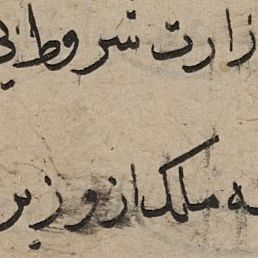 زارت شروط
ملک از وزیر